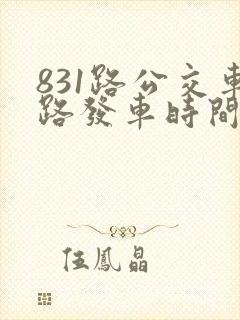 831路公交車
路發車時間
伍鳳晶